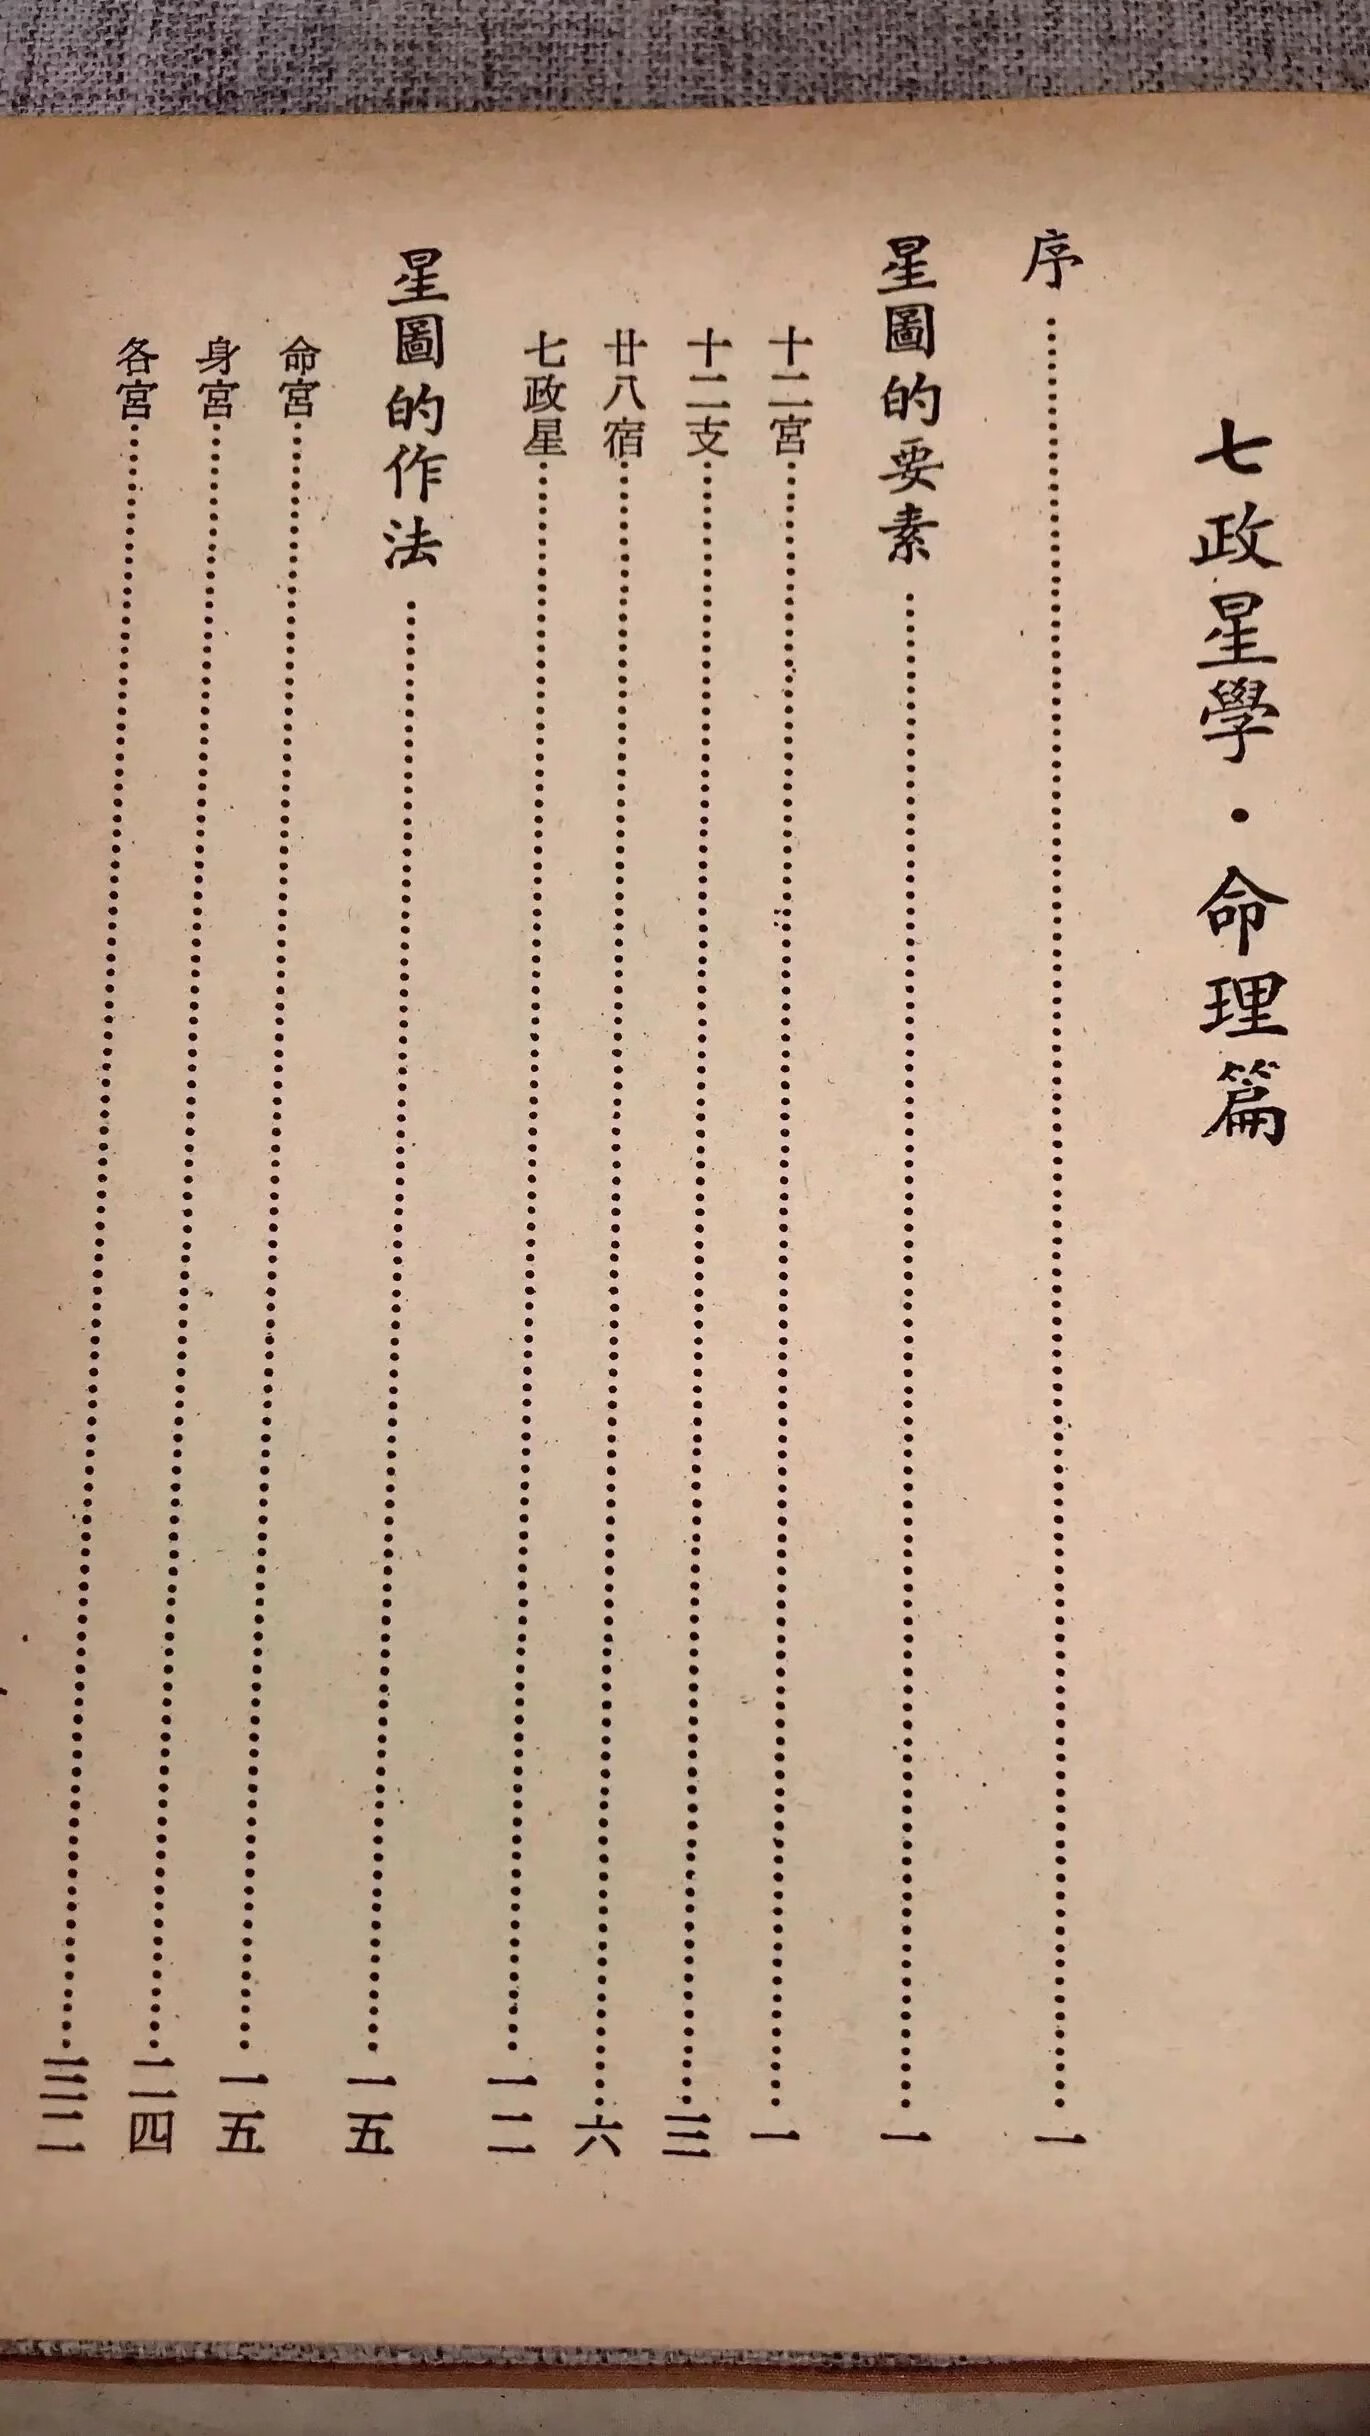 七政星學・命理篇
序……………一
星圖的要素……………一
十二宮……………一
十二支……………三
廿八宿……………六
七政星……………一二
星圖的作法……………一五
命宮……………一五
身宮……………二四
各宮……………三二